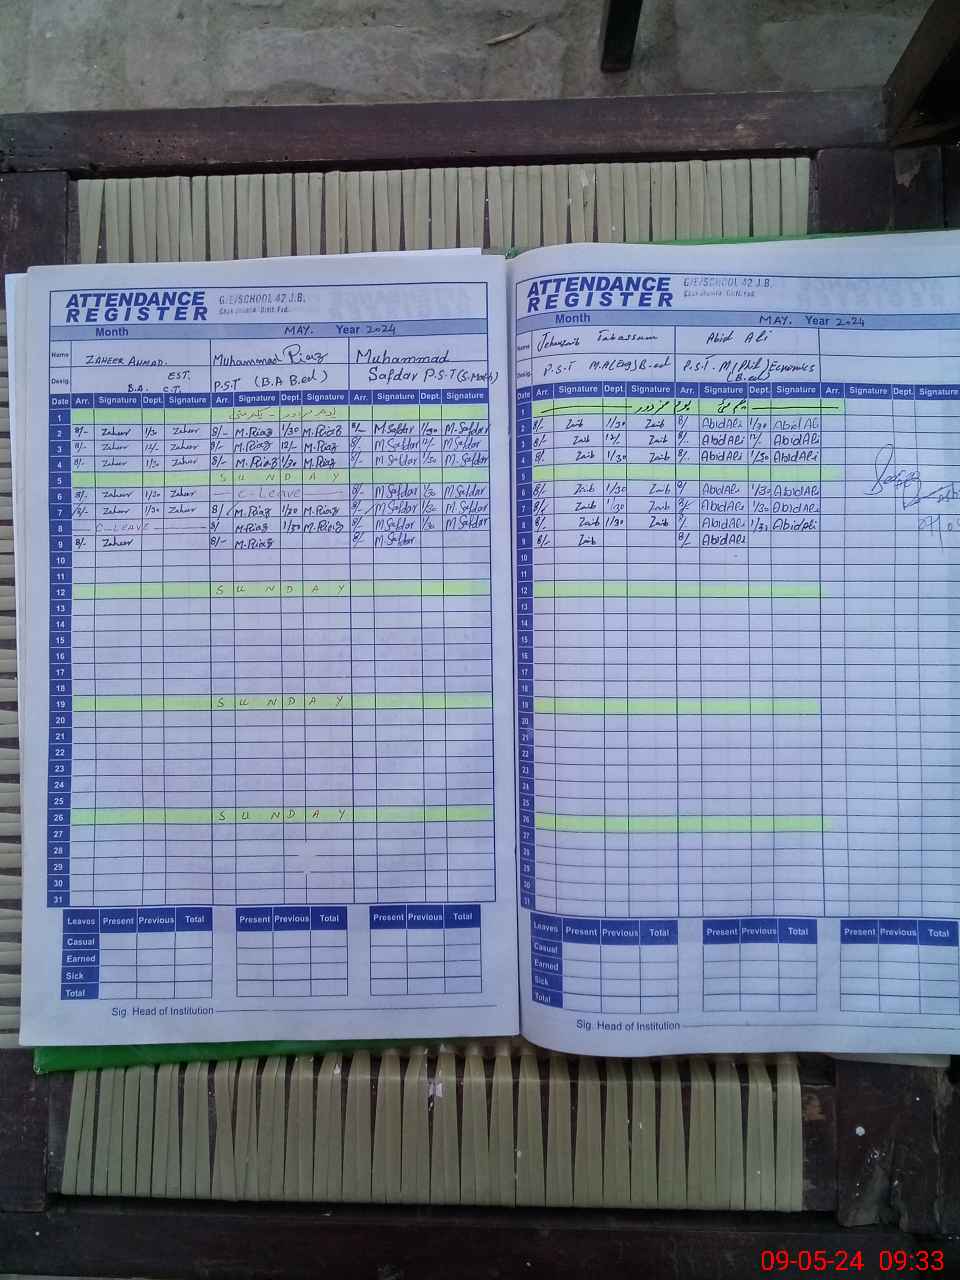 ATTENDANCE REGISTER G/E/SCHOOL 42 J.B.
Month MAY. Year 2024
Name ZAHEER AHMAD. Muhammad Riaz Muhammad
Desig. EST. B.A. C.T. P.S.T (B.A B.ed) Safdar P.S.T
Date Arr. Signature Dept. Signature Arr. Signature Dept. Signature Arr. Signature Dept. Signature
1
2 8/- Zaheer 1/30 Zaheer 8/- M.Riaz 1/30 M.Riaz 8/- M Safdar 1/30 M.Safdar
3 8/- Zaheer 12/- Zaheer 8/- M.Riaz 12/- M.Riaz 8/- M Safdar 12/- M Safdar
4 8/- Zaheer 1/30 Zaheer 8/- M.Riaz 1/30 M.Riaz 8/- M Safdar 1/30 M.Safdar
5 SUNDAY
6 8/- Zaheer 1/30 Zaheer C-Leave 8/- M Safdar 1/30 M Safdar
7 8/- Zaheer 1/30 Zaheer 8/- M.Riaz 1/30 M.Riaz 8/- M Safdar 1/30 M Safdar
8 C-LEAVE 8/- M.Riaz 1/30 M.Riaz 8/- M Safdar 1/30 M Safdar
9 8/- Zaheer 8/- M.Riaz 8/- M Safdar
10
11
12 SUNDAY
13
14
15
16
17
18
19 SUNDAY
20
21
22
23
24
25
26 SUNDAY
27
28
29
30
31
Leaves Present Previous Total Present Previous Total Present Previous Total
Casual
Earned
Sick
Total
Sig. Head of Institution
ATTENDANCE REGISTER G/E/SCHOOL 42 J.B.
Month MAY. Year 2024
Name Tabassum Abid Ali
Desig. P.S.T M.A(Eng) B-ed P.S.T. M.(Phil) Economics (B.ed)
Date Arr. Signature Dept. Signature Arr. Signature Dept. Signature Arr. Signature Dept. Signature
1 یوم مزدور
2 8/- Zaib 1/30 Zaib 8/- AbidAli 1/30 Abid Ali
3 8/- Zaib 12/- Zaib 8/- AbidAli 12/- AbidAli
4 8/- Zaib 1/30 Zaib 8/- AbidAli 1/30 AbidAli
5
6 8/- Zaib 1/30 Zaib 8/- AbidAli 1/30 AbidAli
7 8/- Zaib 1/30 Zaib 8/- AbidAli 1/30 AbidAli
8 8/- Zaib 1/30 Zaib 8/- AbidAli 1/30 AbidAli
9 8/- Zaib 8/- AbidAli
10
11
12
13
14
15
16
17
18
19
20
21
22
23
24
25
26
27
28
29
30
31
Leaves Present Previous Total Present Previous Total Present Previous Total
Casual
Earned
Sick
Total
Sig. Head of Institution
09-05-24 09:33